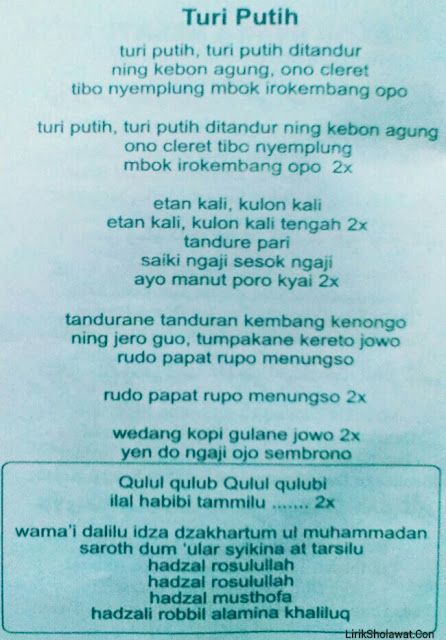 Turi Putih
turi putih, turi putih ditandur
ning kebon agung, ono cleret
tibo nyemplung mbok irokembang opo
turi putih, turi putih ditandur ning kebon agung
ono cleret tibo nyemplung
mbok irokembang opo 2x
etan kali, kulon kali
etan kali, kulon kali tengah 2x
tandure pari
saiki ngaji sesok ngaji
ayo manut poro kyai 2x
tandurane tanduran kembang kenongo
ning jero guo, tumpakane kereto jowo
rudo papat rupo menungso
rudo papat rupo menungso 2x
wedang kopi gulane jowo 2x
yen do ngaji ojo sembrono
Qulul qulub Qulul qulubi
ilal habibi tammilu ....... 2x
wama'i dalilu idza dzakhartum ul muhammadan
saroth dum 'ular syikina at tarsilu
hadzal rosulullah
hadzal rosulullah
hadzal musthofa
hadzali robbil alamina khaliluq
LirikSholawat.Con